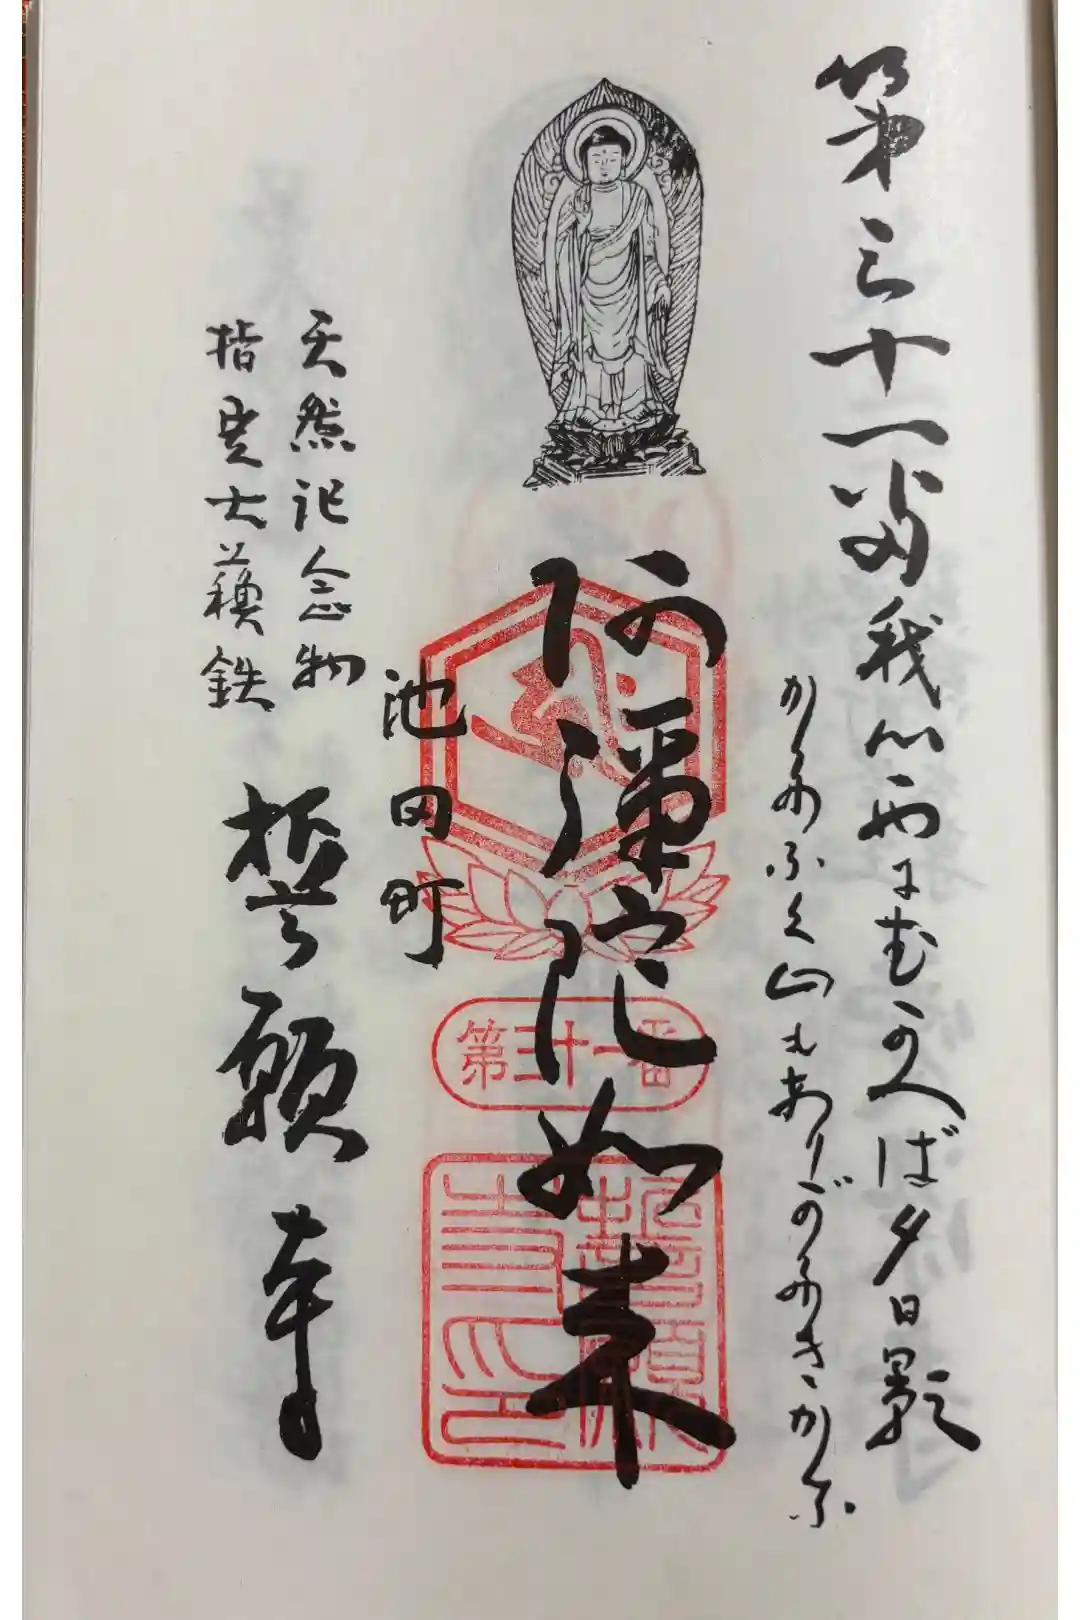 第三十一番我心西にむかへば夕日影
かたふく山もありがたきかな
阿彌陀如来
第三十一番
誓願寺印
池田町
天然記念物
指定大蘇鉄
誓願寺